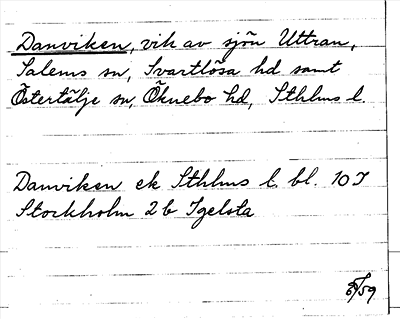 Danviken, vik av sjön Uttran,
Salems sn, Svartlösa hd samt
Östertälje sn, Öknebo hd, Sthlms l.
Danviken ek Sthlms l. bl. 10 I
Stockholm 2 b Igelsta
/59